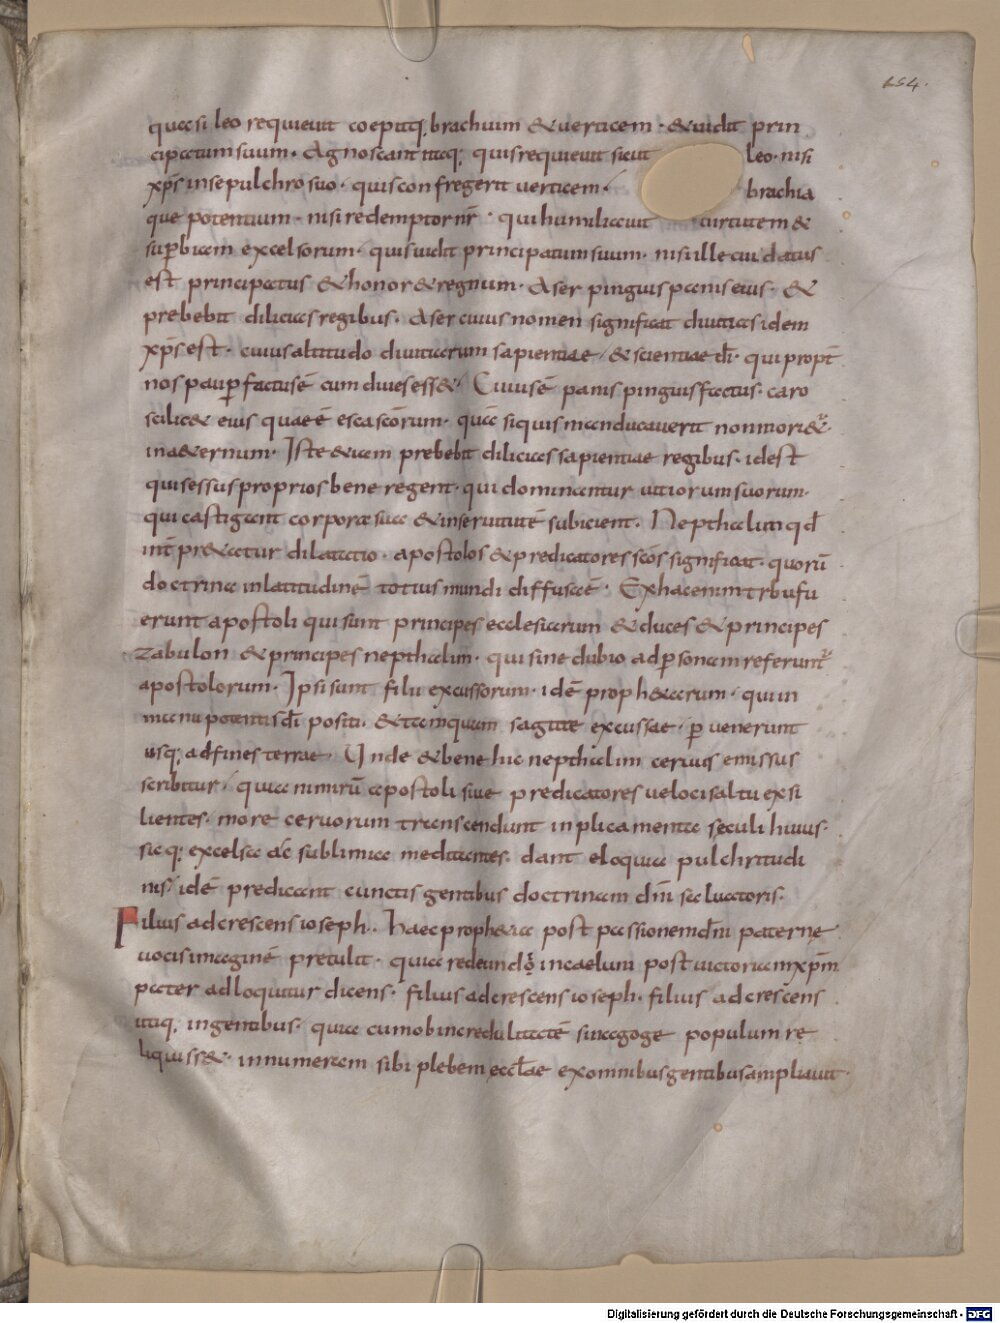 154.
quasi leo requieuit coepitq; brachium & uerticem · & uidit prin
cipatum suum · Agnoscant itaq; quis requieuit sicut leo · nisi
xp̄s in sepulchro suo · quis confregerit uerticem · brachia
que potentium · nisi redemptor nr̄ · qui humiliauit uirtutem &
sup̱biam excelsorum · quis uidit principatum suum · nisi ille cui datus
est principatus & honor & regnum · Aser pinguis panis eius · &
prebebit dilicias regibus · Aser cuius nomen significat diuitias idem
xp̄s est · cuius altitudo diuitiarum sapientiae / & scientiae dī · qui propt̄
nos paup̱ factus ē cum diues ess& · Cuius ē panis pinguis factus · caro
scilic& eius quae ē esca sc̄orum · quā siquis manducauerit non mori&ur
in a&ernum · Iste &iam prebebit dilicias sapientiae regibus · idest
qui sessus proprios bene regent · qui dominantur uitiorum suorum ·
qui castigant corpora sua & in seruitutē subicient · Nepthalim qd̄
int̄pr&atur dilatatio · apostolos & predicatores sc̄os significat · quorū
doctrina in latitudinē totius mundi diffusa ē · Ex hac enim tribu fu
erunt apostoli qui sunt principes ecclesiarum & duces & principes
zabulon & principes nepthalim · qui sine dubio ad p̱sonam referuntur
apostolorum · Ipsi sunt filii excussorum · id ē proph&arum · qui in
manu potentis dī positi · & tamquam sagittae excussae · p̱uenerunt
usq; ad fines terrae · Unde & bene hic nepthalim ceruus emissus
scribitur / quia nimirū apostoli siue predicatores ueloci saltu exsi
lientes · more ceruorum transcendunt inplicamenta sęculi huius ·
sicq; excelsa ac sublimia meditantes · dant eloquia pulchritudi
nis / id ē predicant cunctis gentibus doctrinam dn̄i saluatoris ·
Filius adcrescens ioseph · Haec proph&ia post passionem dn̄i paternę
uocis imaginē pretulit · quia redeundo in caelum post uictoriam xp̄m
pater adloquitur dicens · filius adcrescens ioseph · filius adcrescens
utiq; in gentibus · quia cum ob incredulitatē sinagoge populum re
liquiss& · innumeram sibi plebem eccłae ex omnibus gentibus ampliauit ·
Digitalisierung gefördert durch die Deutsche Forschungsgemeinschaft - DFG